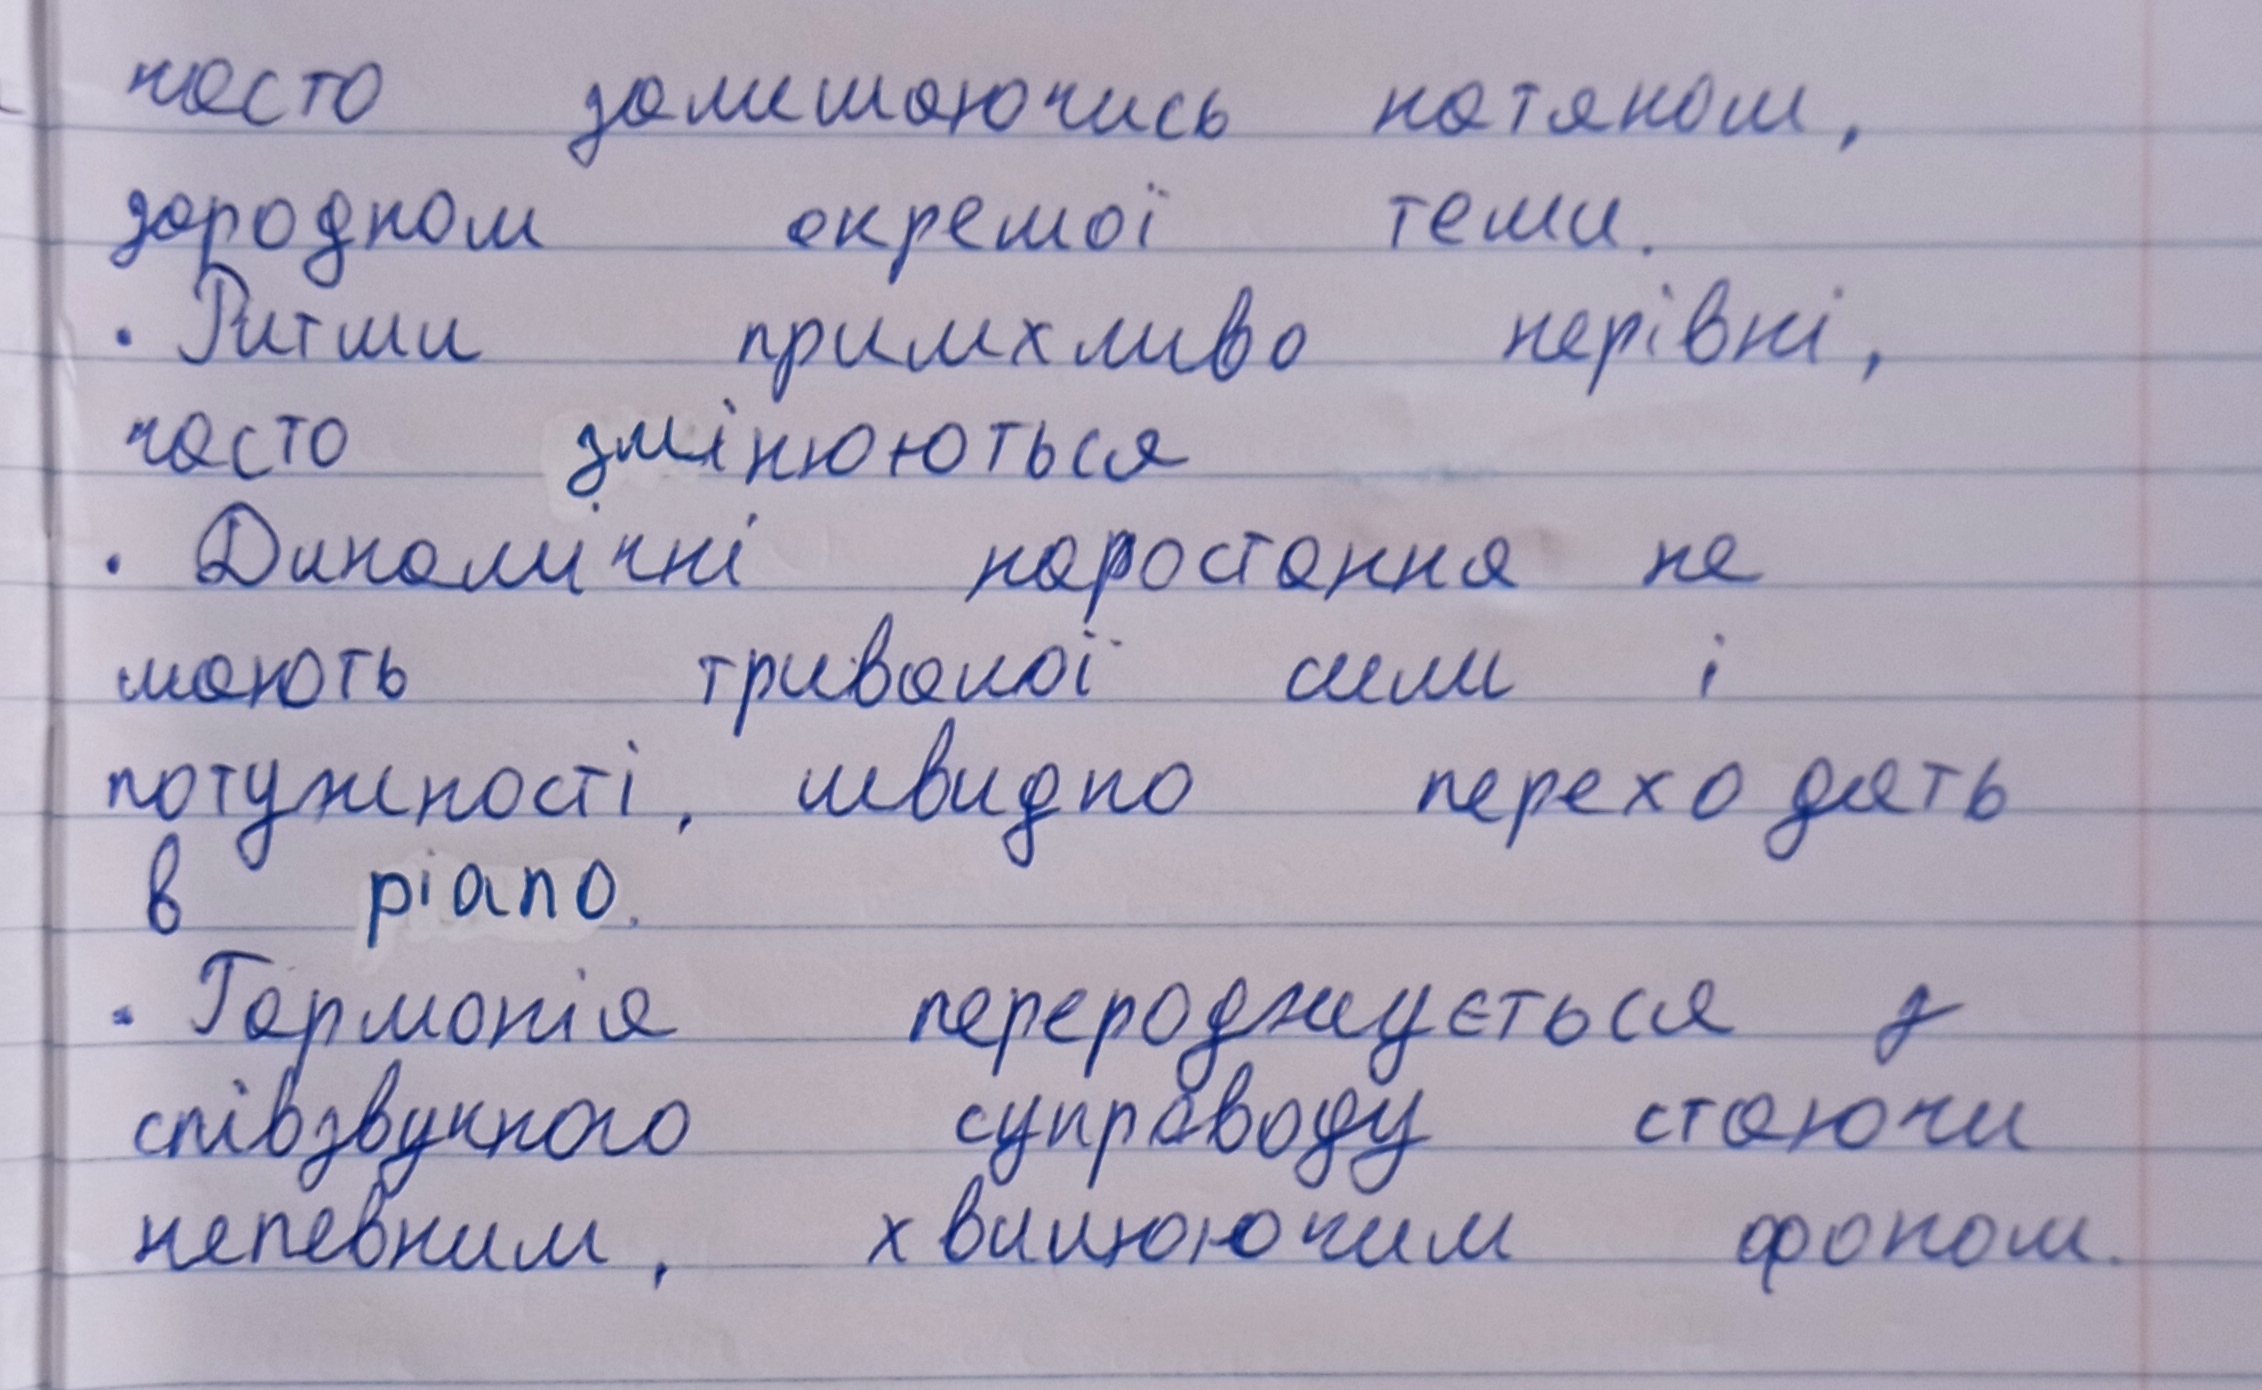 часто залишаючись натяком,
зародком окремої теми.
• Ритми примхливо нерівні,
часто змінюються
• Динамічні наростання не
мають тривалої сили і
потужності, швидко переходять
в piano.
• Гармонія перероджується з
співзвучного супроводу стаючи
непевним, хвилюючим фоном.